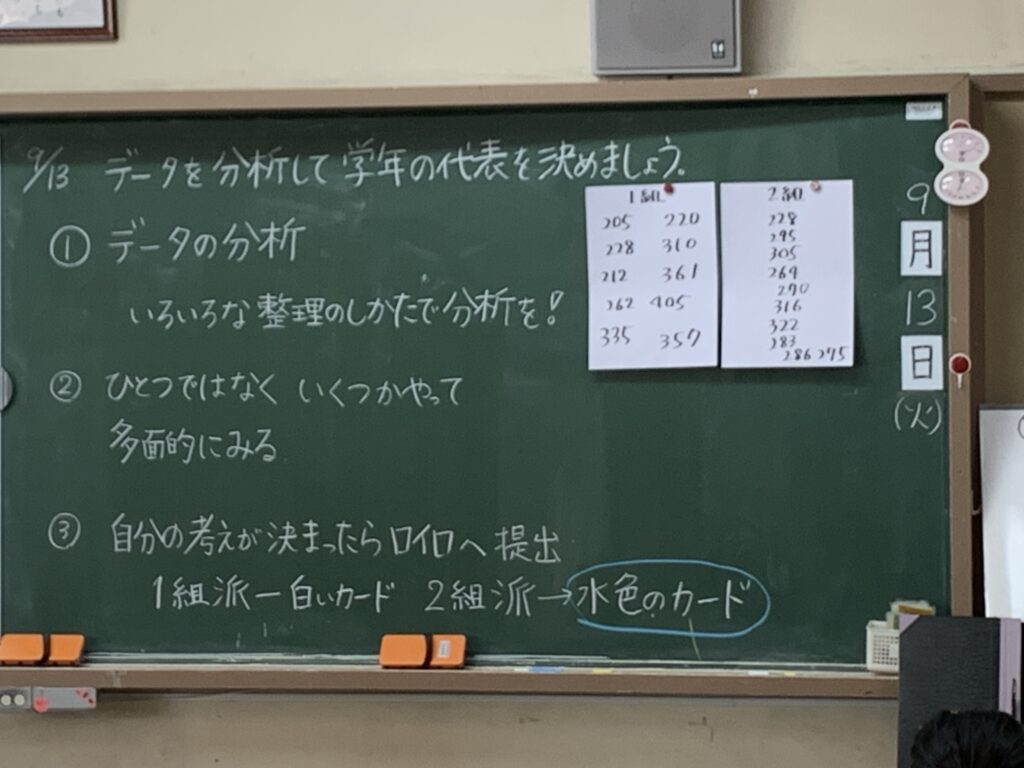 9/13 データを分析して学年の代表を決めましょう。
① データの分析
いろいろな整理のしかたで分析を!
② ひとつではなく いくつかやって
多面的にみる
③ 自分の考えが決まったらロイロへ提出
1組派ー白いカード 2組派→水色のカード
1組
205 220
228 310
212 361
262 405
335 357
2組
228
295
305
269
290
316
322
283
286 275
9
月
13
日
(火)